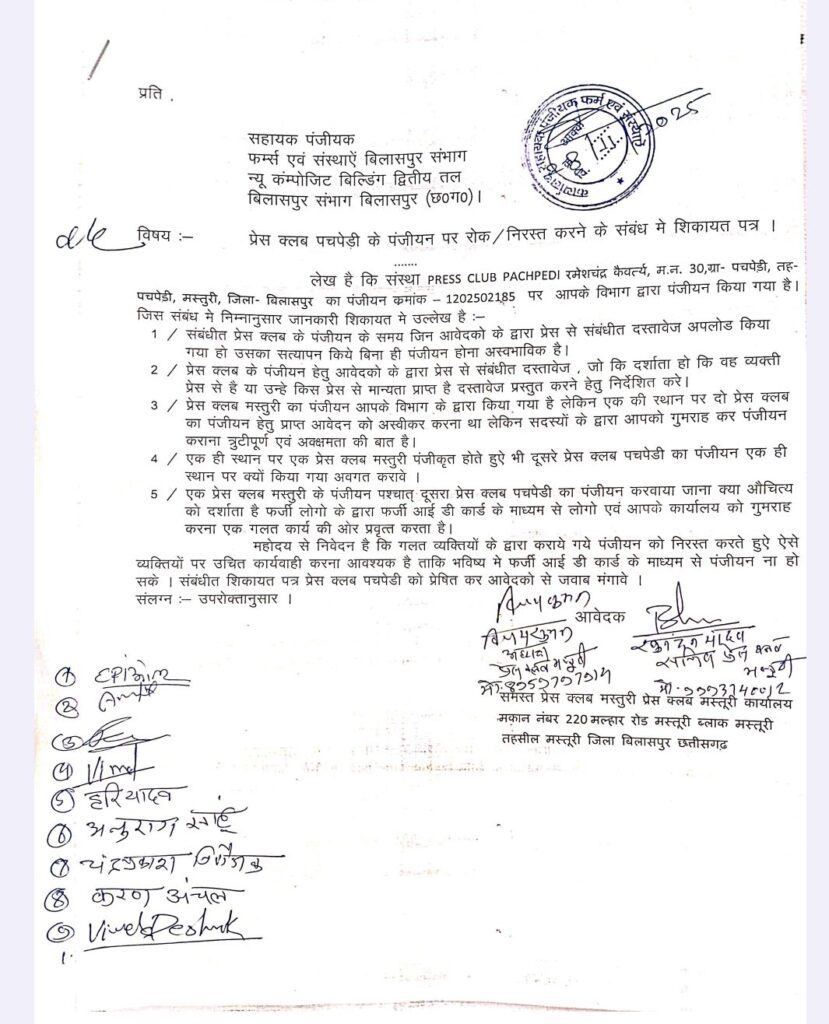 प्रति .
कार्यालय सहायक पंजीयक फर्म एवं संस्थाऐं
आवक
2025
सहायक पंजीयक
फर्म्स एवं संस्थाऐं बिलासपुर संभाग
न्यू कंम्पोजिट बिल्डिंग द्वितीय तल
बिलासपुर संभाग बिलासपुर (छ०ग०)।
विषय :– प्रेस क्लब पचपेड़ी के पंजीयन पर रोक/निरस्त करने के संबंध मे शिकायत पत्र ।
.......
लेख है कि संस्था PRESS CLUB PACHPEDI रमेशचंद्र कैवर्त्य, म.न. 30,ग्रा- पचपेड़ी, तह-
पचपेडी, मस्तुरी, जिला- बिलासपुर का पंजीयन क्रमांक – 1202502185 पर आपके विभाग द्वारा पंजीयन किया गया है।
जिस संबंध मे निम्नानुसार जानकारी शिकायत मे उल्लेख है :–
1 / संबंधीत प्रेस क्लब के पंजीयन के समय जिन आवेदको के द्वारा प्रेस से संबंधीत दस्तावेज अपलोड किया
गया हो उसका सत्यापन किये बिना ही पंजीयन होना अस्वभाविक है।
2 / प्रेस क्लब के पंजीयन हेतु आवेदको के द्वारा प्रेस से संबंधीत दस्तावेज , जो कि दर्शाता हो कि वह व्यक्ती
प्रेस से है या उन्हे किस प्रेस से मान्यता प्राप्त है दस्तावेज प्रस्तुत करने हेतु निर्देशित करे।
3 / प्रेस क्लब मस्तुरी का पंजीयन आपके विभाग के द्वारा किया गया है लेकिन एक की स्थान पर दो प्रेस क्लब
का पंजीयन हेतु प्राप्त आवेदन को अस्वीकर करना था लेकिन सदस्यों के द्वारा आपको गुमराह कर पंजीयन
कराना त्रुटीपूर्ण एवं अक्षमता की बात है।
4 / एक ही स्थान पर एक प्रेस क्लब मस्तुरी पंजीकृत होते हुऐ भी दूसरे प्रेस क्लब पचपेडी का पंजीयन एक ही
स्थान पर क्यों किया गया अवगत करावे ।
5 / एक प्रेस क्लब मस्तुरी के पंजीयन पश्चात् दूसरा प्रेस क्लब पचपेडी का पंजीयन करवाया जाना क्या औचित्य
को दर्शाता है फर्जी लोगो के द्वारा फर्जी आई डी कार्ड के माध्यम से लोगो एवं आपके कार्यालय को गुमराह
करना एक गलत कार्य की ओर प्रवृत्त करता है।
महोदय से निवेदन है कि गलत व्यक्तियों के द्वारा कराये गये पंजीयन को निरस्त करते हुऐ ऐसे
व्यक्तियों पर उचित कार्यवाही करना आवश्यक है ताकि भविष्य मे फर्जी आई डी कार्ड के माध्यम से पंजीयन ना हो
सके । संबंधीत शिकायत पत्र प्रेस क्लब पचपेडी को प्रेषित कर आवेदको से जवाब मंगावे ।
संलग्न :– उपरोक्तानुसार ।
आवेदक
अध्यक्ष
प्रेस क्लब मस्तुरी
यादव
सचिव प्रेस क्लब
मस्तुरी
समस्त प्रेस क्लब मस्तुरी प्रेस क्लब मस्तूरी कार्यालय
मकान नंबर 220 मल्हार रोड मस्तूरी ब्लाक मस्तूरी
तहसील मस्तूरी जिला बिलासपुर छत्तीसगढ़
1
2
3
4
5 हरि यादव
6 अनुराग साहू
7 चंद्रप्रकाश
8 करण अंचल
9